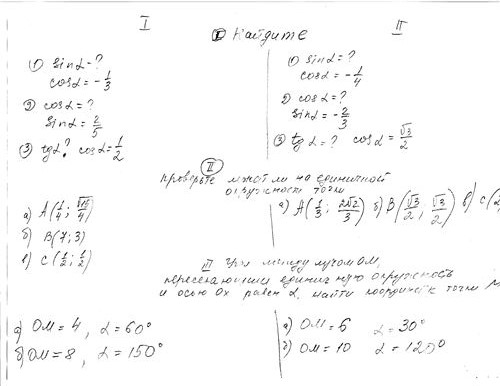 I
II
I Найдите
① sinα = ?
cosα = -1/3
② cosα = ?
sinα = 2/5
③ tgα? cosα = 1/2
① sinα = ?
cosα = -1/4
② cosα = ?
sinα = -2/3
③ tgα = ? cosα = √3/2
II
Проверьте лежат ли на единичной
окружности точки
а) A(1/4; √15/4)
б) B(7; 3)
в) C(1/2; 1/2)
а) A(1/3; 2√2/3) б) B(√3/2; √3/2) в) C(2
III Угол между лучом OM,
пересекающим единичную окружность
и осью Ox равен α. найти координаты точки M
а) OM = 4, α = 60°
б) OM = 8, α = 150°
а) OM = 6 α = 30°
б) OM = 10 α = 120°